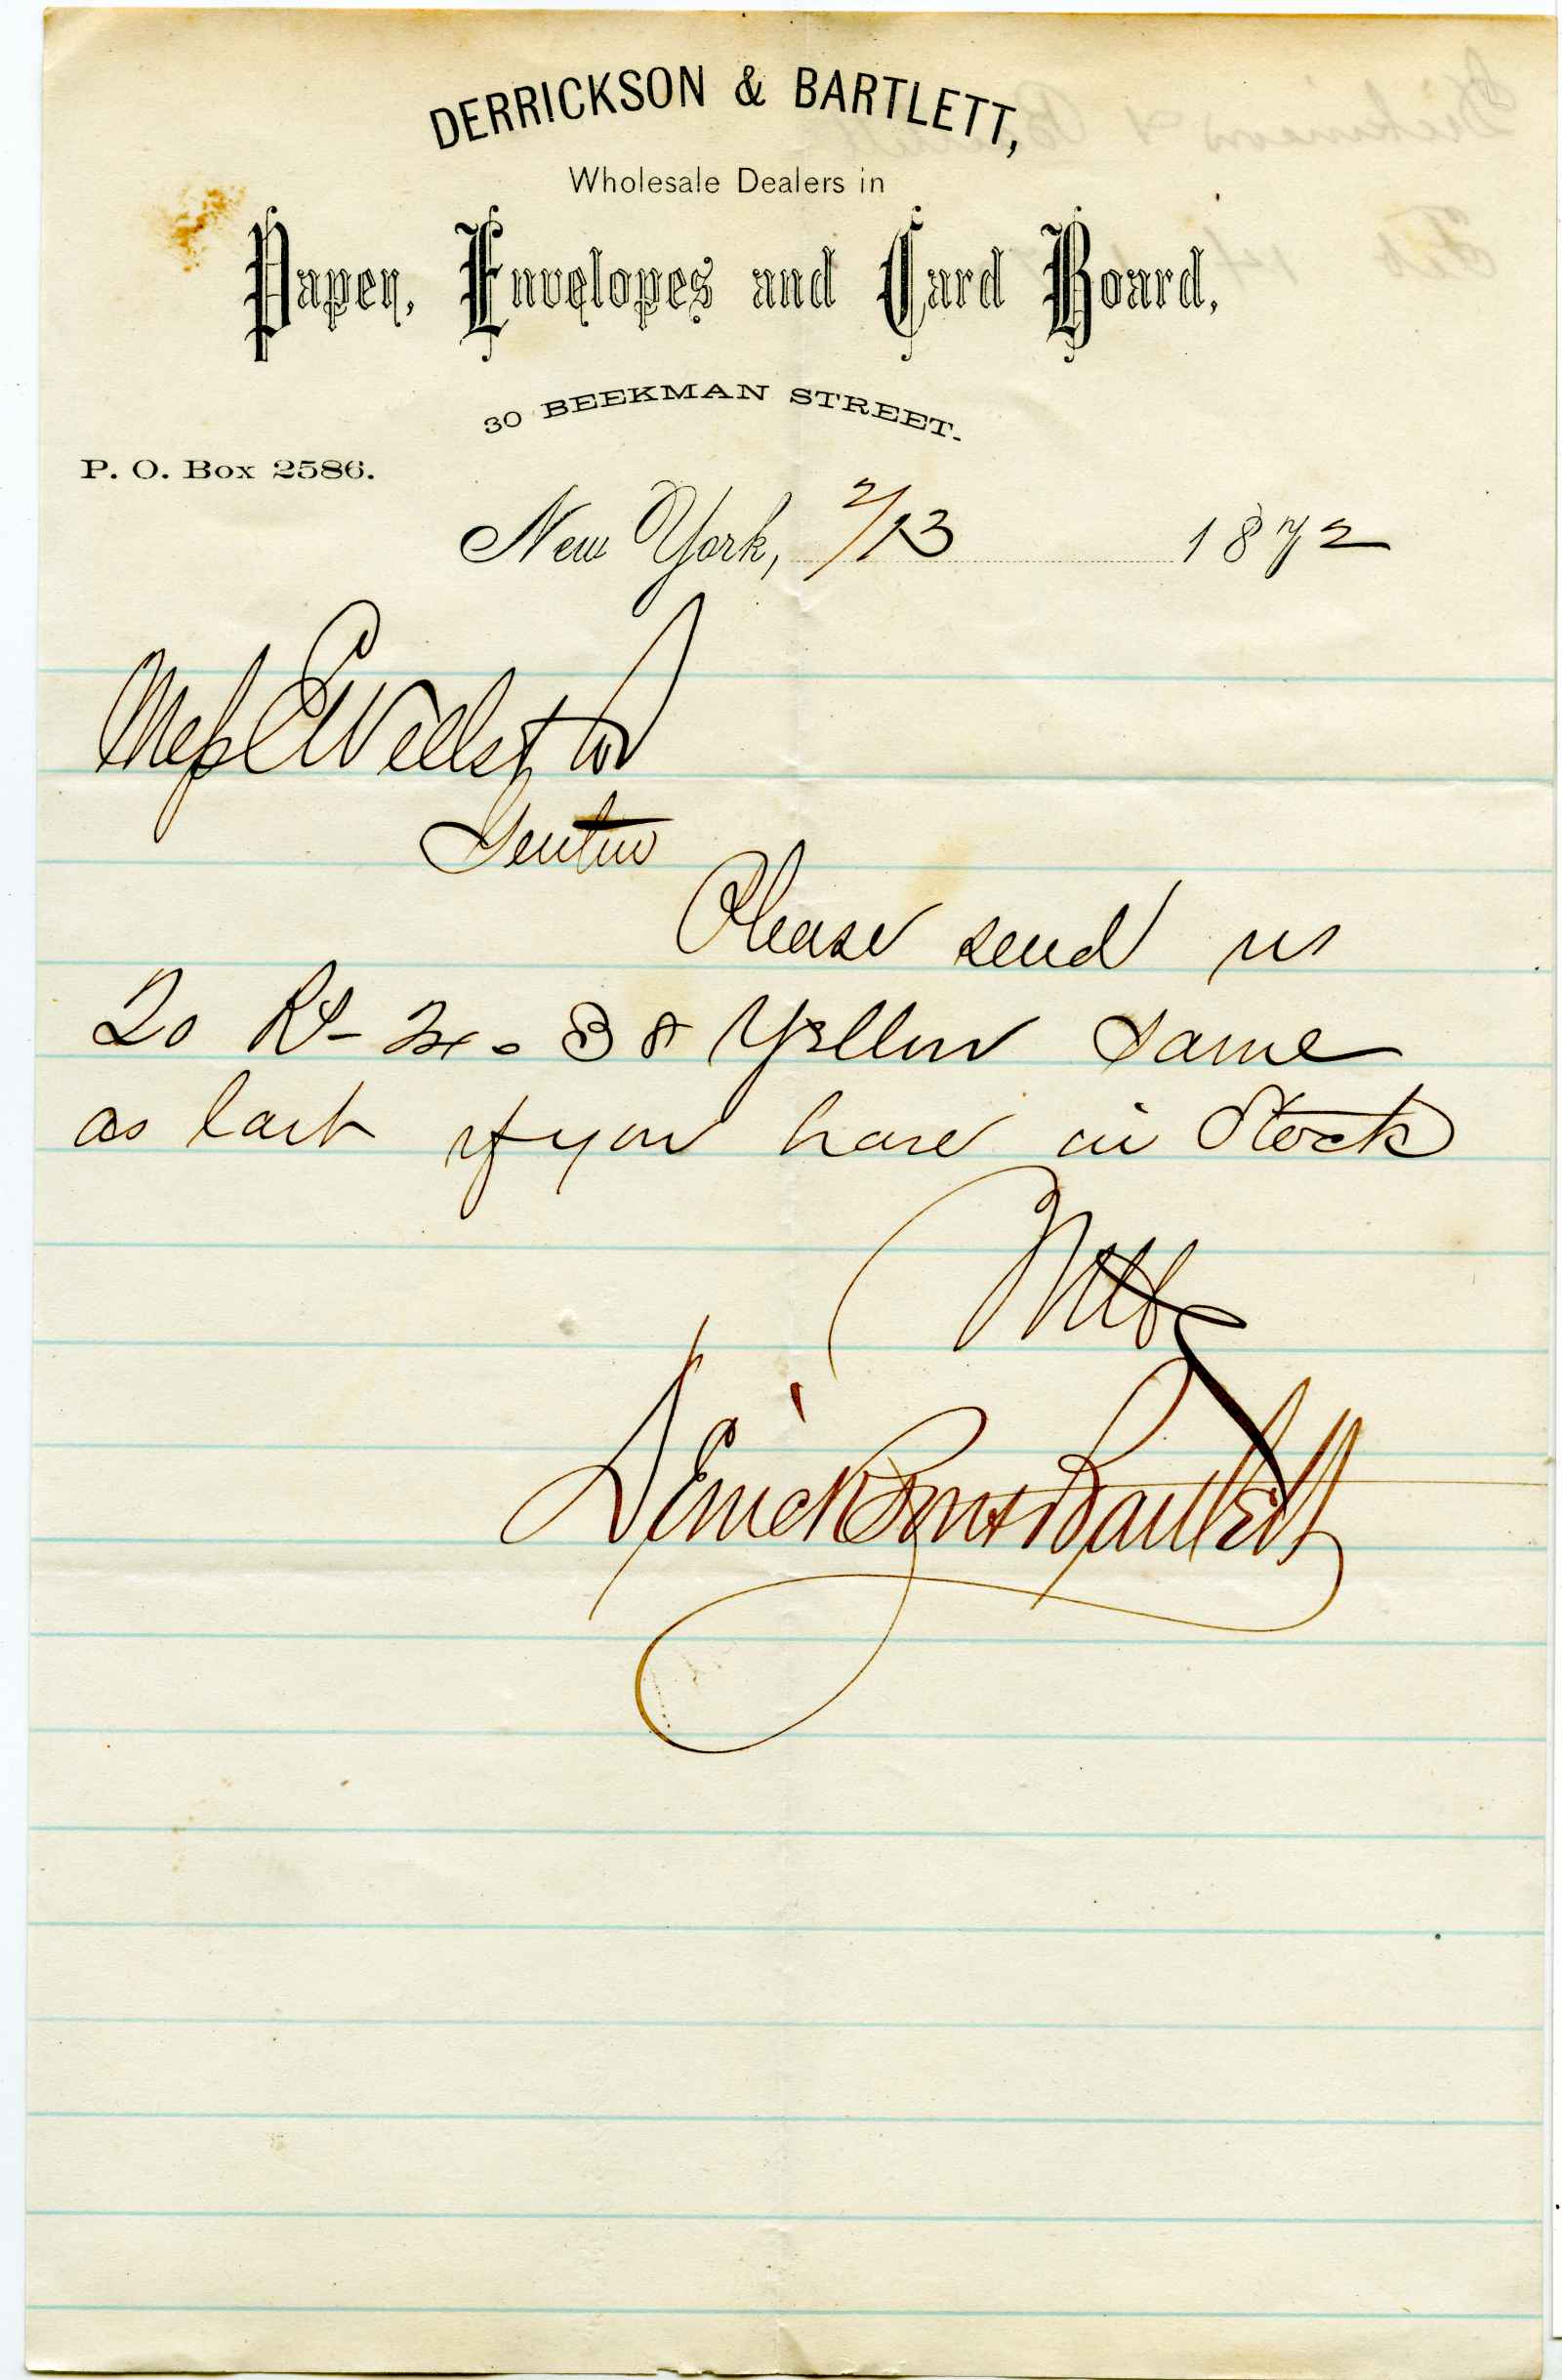 DERRICKSON & BARTLETT,
Wholesale Dealers in
Paper, Envelopes and Card Board,
30 BEEKMAN STREET.
P. O. Box 2586.
New York, 2/13 1872
Mess C Wells & Co
Gentn
Please send us
20 Rs 24 38 Yellow same
as last if you have in Stock
Derrickson & Bartlett